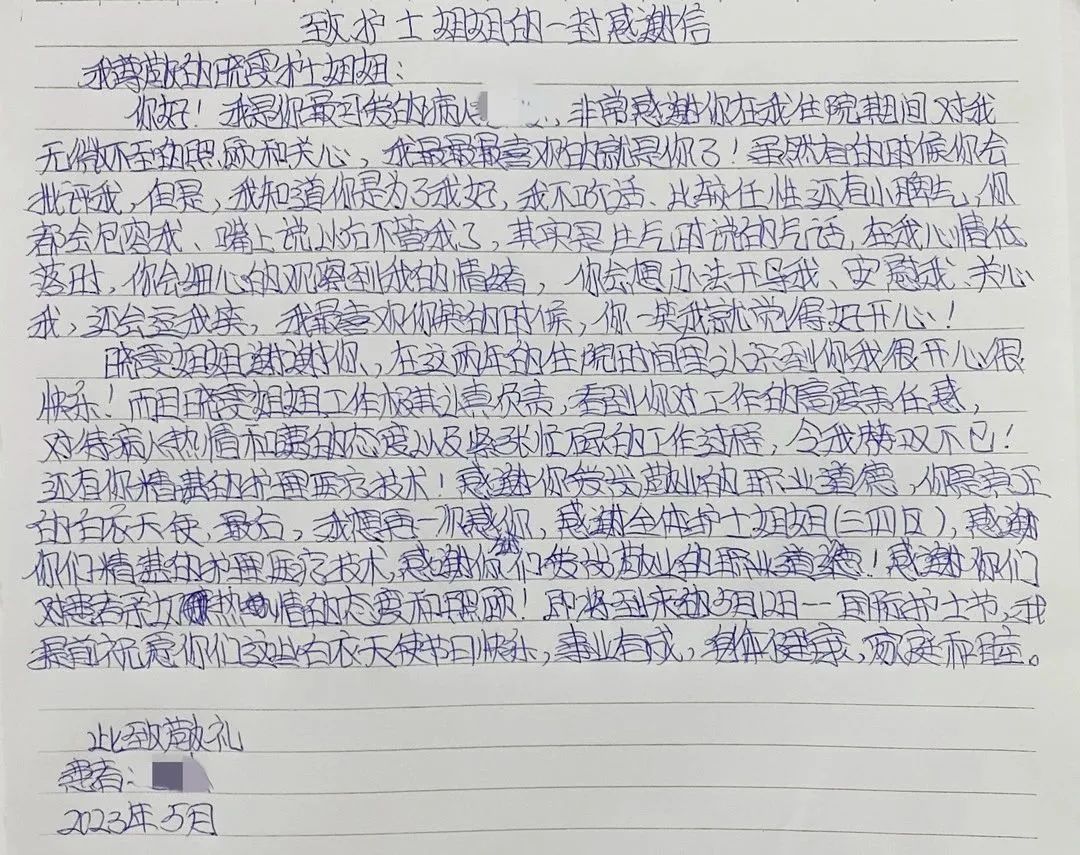 致护士姐姐的一封感谢信
我尊敬的晓雯护士姐姐:
你好！我是你最可爱的病人，非常感谢你在我住院期间对我
无微不至的照顾和关心，我最最最喜欢的就是你了！虽然有的时候你会
批评我，但是，我知道你是为了我好，我不听话、比较任性还有小脾气，你
都会包容我、嘴上说以后不管我了，其实是生气时说的气话，在我心情低
落时，你会细心的观察到我的情绪，你会想办法开导我、安慰我、关心
我，还会逗我笑，我最喜欢你笑的时候，你一笑我就觉得好开心！
晓雯姐姐谢谢你，在这两年的住院时间里认识到你我很开心很
快乐！而且晓雯姐姐工作极其认真负责，看到你对工作的高度责任感，
对待病人热情和蔼的态度以及紧张忙碌的工作过程，令我赞叹不已！
还有你精湛的护理医疗技术！感谢你爱岗敬业的职业道德，你是真正
的白衣天使，最后，我想再一次感你，感谢全体护士姐姐(三四区)，感谢
你们精湛的护理医疗技术，感谢你们爱岗敬业的职业道德！感谢你们
对患者亲切热情的态度和照顾！即将到来的5月12日一国际护士节，我
提前祝愿你们这些白衣天使节日快乐，事业有成，身体健康，家庭和睦。
此致敬礼
患者:
2023年5月